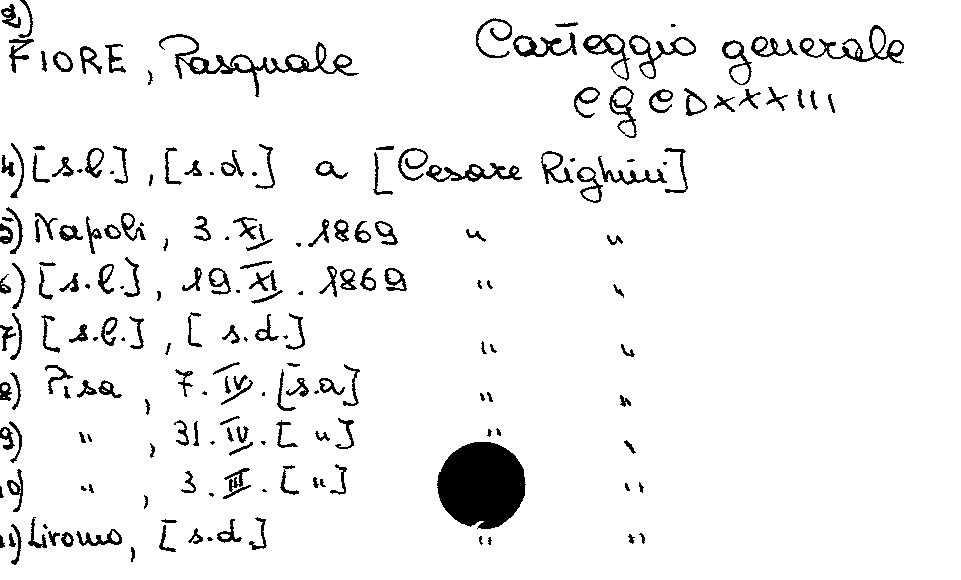 2)
FIORE, Pasquale Carteggio generale
CGCDXXXIII
4) [s.l.], [s.d.] a [Cesare Righini]
5) Napoli, 3.XI.1869 " "
6) [s.l.], 19.XI.1869 " "
7) [s.l.], [s.d.] " "
8) Pisa, 7.IV.[s.a] " "
9) " , 31.IV.["] " "
10) " , 3.III.["] "
11) Liromo, [s.d.] " "